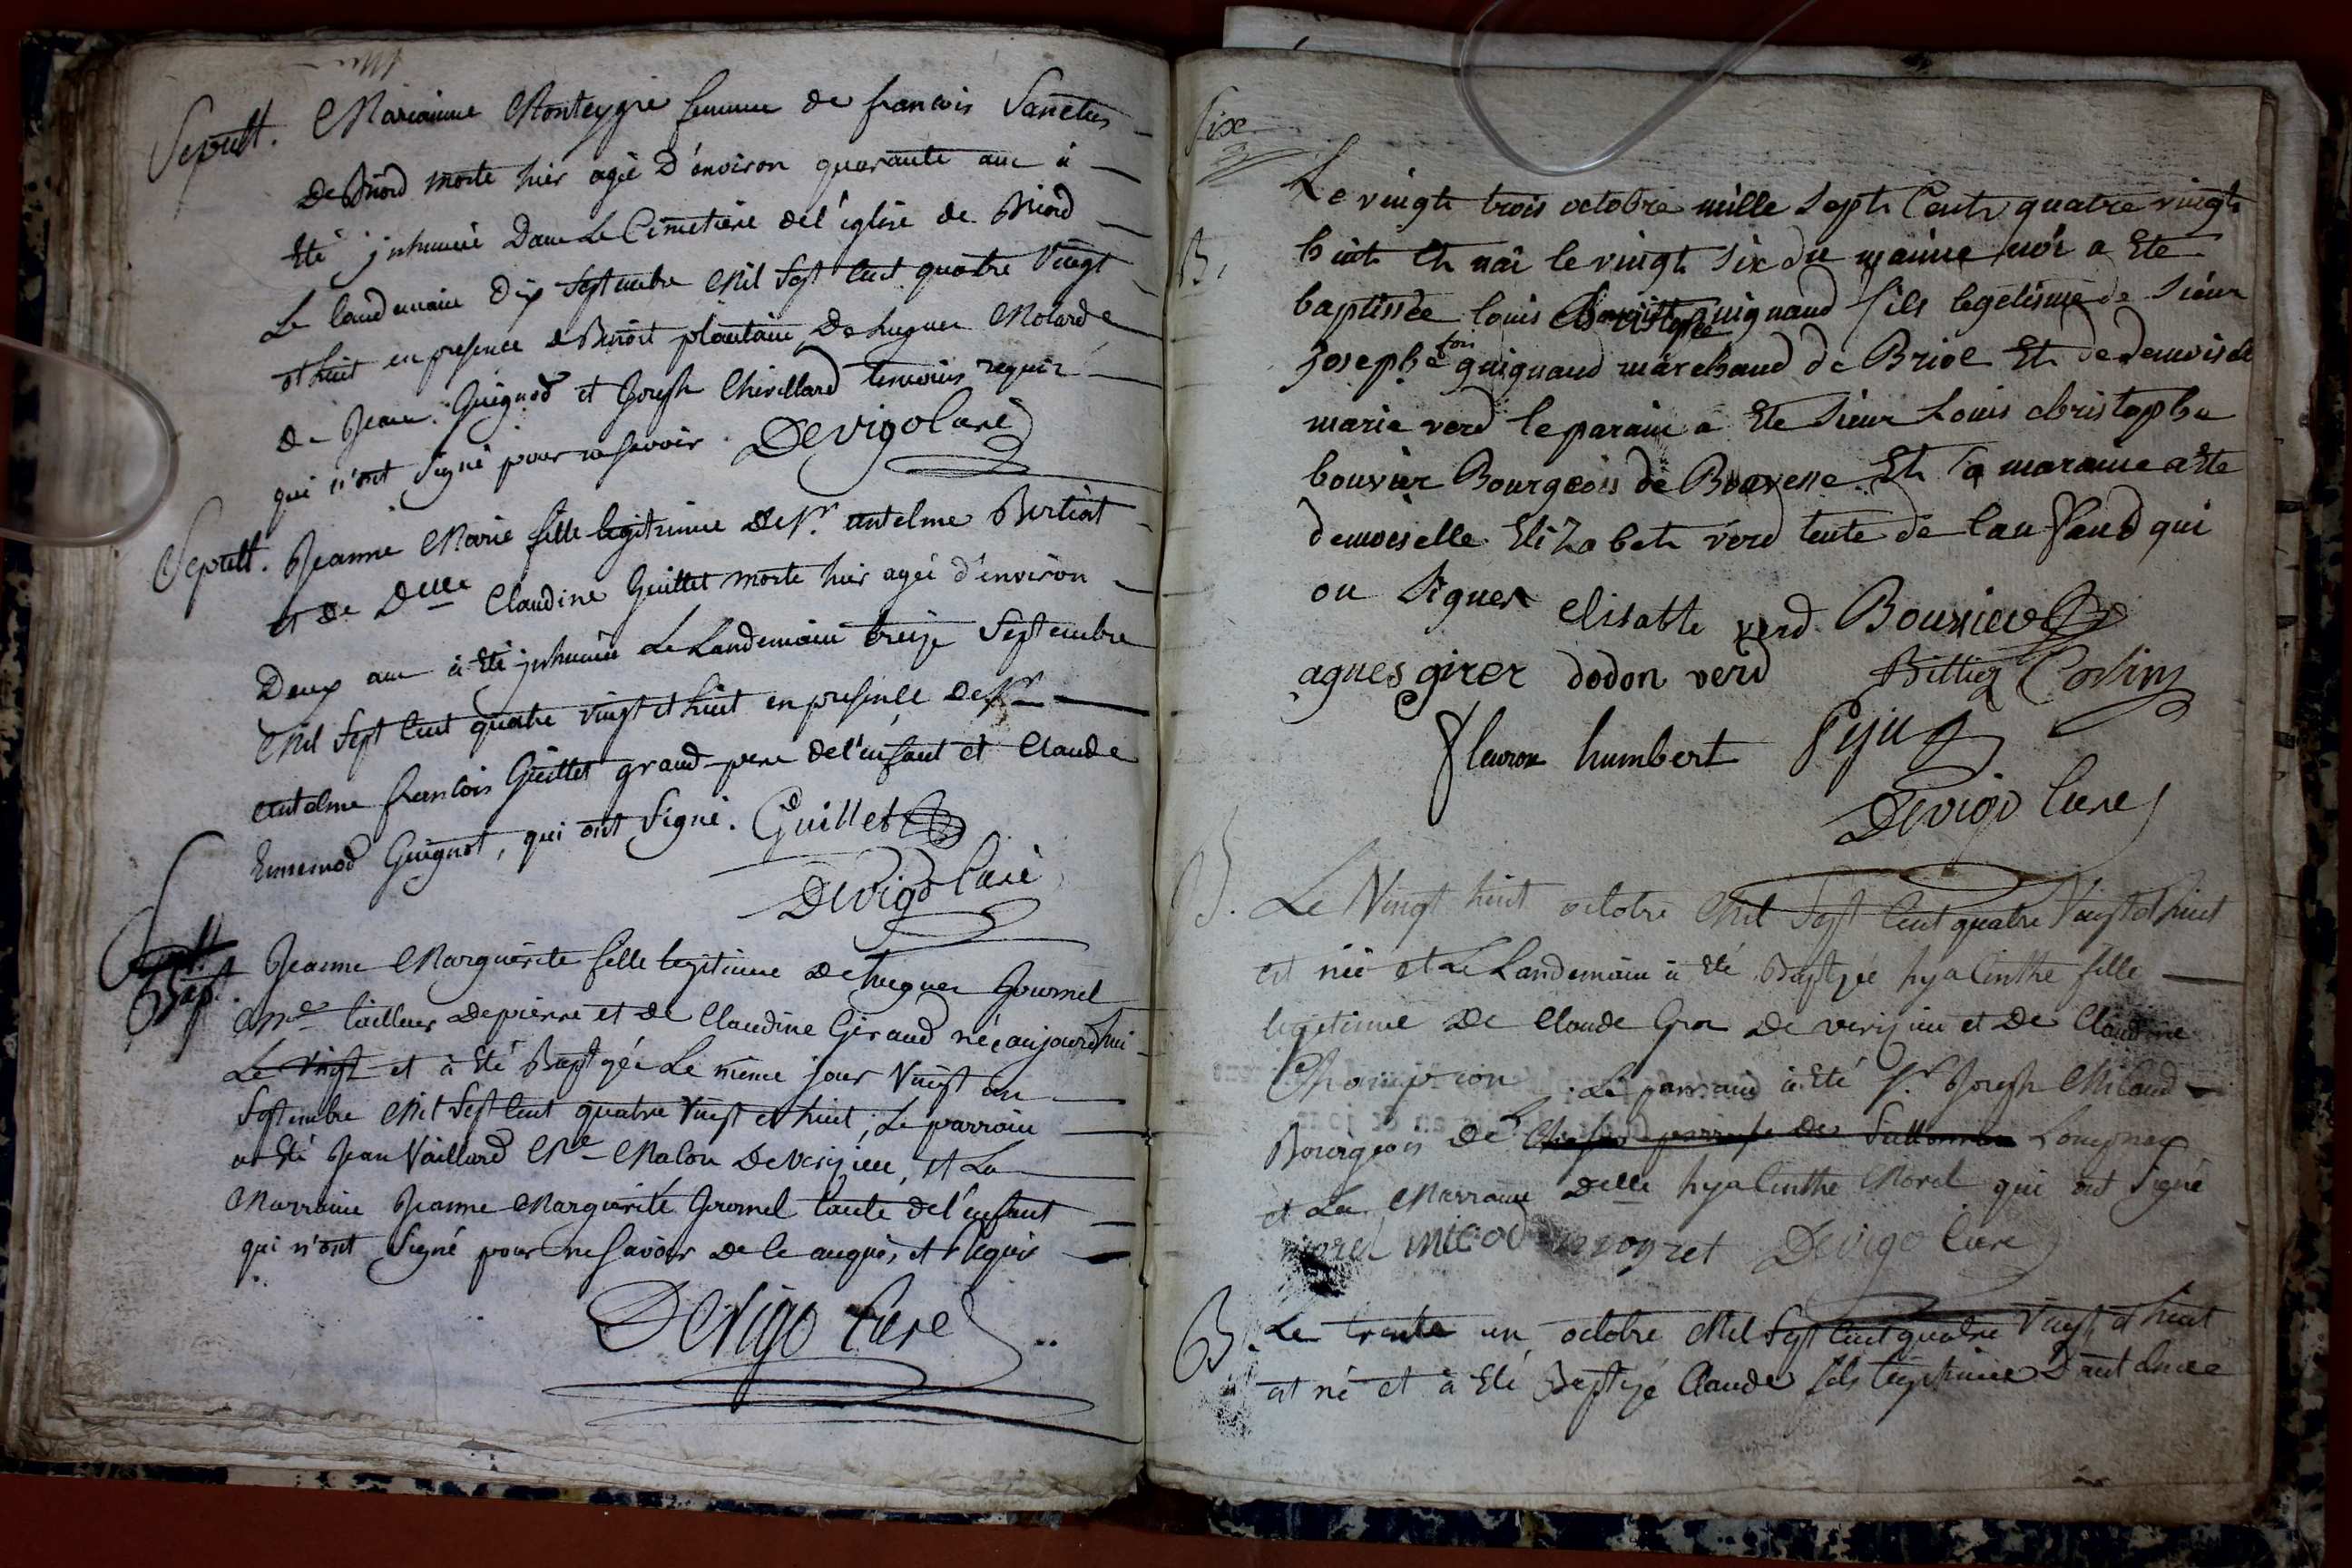 Sepult. Marianne Monteygrié femme de francois Sanctus
De Briord morte hier agée D'environ quarante ans à
Eté jnhumée Dans Le Cimetiere del'église de Briord
Le landemain Dix Septembre Mil Sept Cent quatre Vingt
et huit en presence de Benoit plantain, De hugues Molard
De Jean Guignod et Joseph Chevillard temoins requis
qui n'ont Signé pour ne Savoir. Devigo Curé
Sepult. Jeanne Marie fille legitimme De Sr. antelme Bertiat
et De Delle Claudine Guillet morte hier agée d'environ
Deux ans à Eté jnhumée Le Landemain treize Septembre
Mil Sept Cent quatre vingt et huit en presence de Sr
antelme francois Guillet grand-pere del'enfant et Claude
Ennemod Guignot, qui ont Signé. Guillet
Devigo Curé
Sepult.
Bapt. Jeanne Marguerite fille legitimme De hugues Gournel
Md tailleur Depierre et De Claudine Giraud née aujourdhui
Le vingt et à Eté Baptizée Le même jour Vingt un
Septembre Mil Sept Cent quatre Vingt et huit; Le parrain
a Eté Jean Vaillard Me Malon De verizieu, et La
Marraine Jeanne Marguerite Gournel tante del'enfant
qui n'ont Signé pour ne Savoir De ce anquis, et Requis
Devigo Curé
Six
B. Le vingt trois octobre mille Sept Cents quatre vingt
huit Et nai le vingt Six du maime moi a Ete
baptissée louis Christophe guignaud fils legetisme de Sieur
josephe guignaud marchaud de Briol Et de demoiselle
marie verd le parain a Ete Sieur Louis christophe
bouvier Bourgeois de Bouvesse Et la maraine a Ete
demoiselle Elizabeth verd tente de lanfand qui
on Signer elisabte verd Bouvier
agnes girer dodon verd Billiez Cosin
fleuron humbert Peju
Devigo Curé
B. Le Vingt huit octobre Mil Sept Cent quatre Vingt et huit
est née et Le Landemain à Eté Baptizée hyacinthe fille
legitimme De Claude Gros De verizieu et De Claudine
Champion. Le parrain à Eté Sr. Joseph Micoud
Bourgeois De Lompnaz
et La Marraine Delle hyacinthe Morel qui ont Signé
morel micoud Devigo Curé
B. Le trente un octobre Mil Sept Cent quatre Vingt et huit
est né et à Eté Baptizé Claude fils legitimme D'antelme